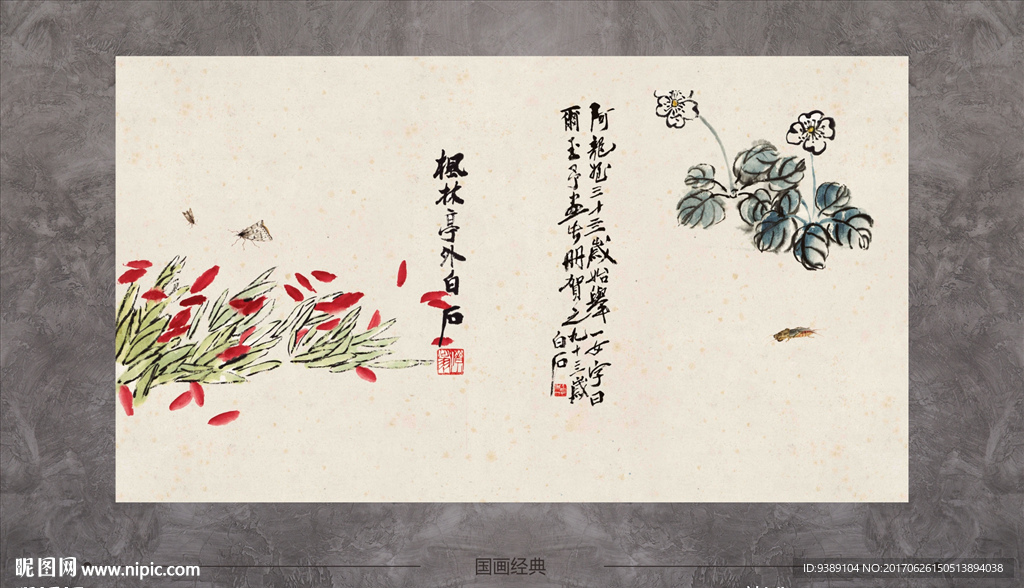 阿龍姪三十三歲始舉一女字曰
爾玉予畫此冊賀之九十三歲
白石
楓林亭外白石
昵图网 www.nipic.com
国画经典
ID:9389104 NO:20170626150513894038